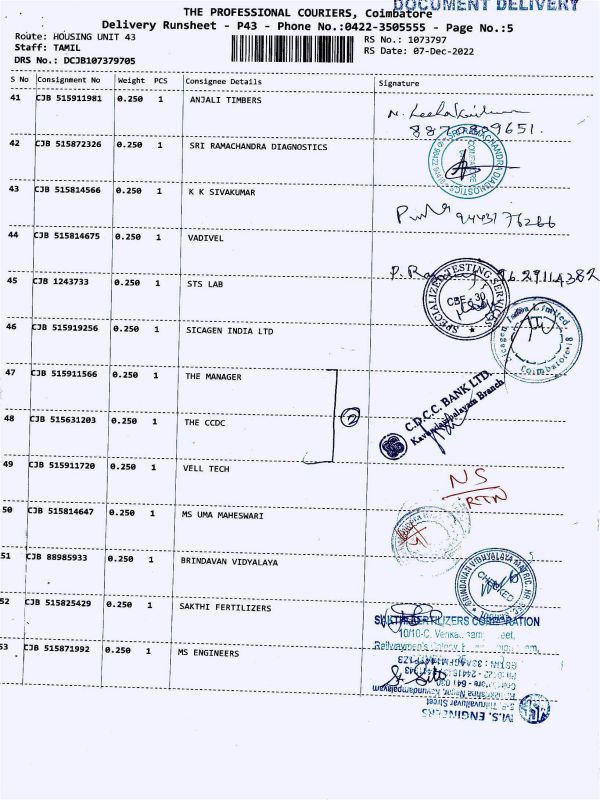 DOCUMENT DELIVERY
THE PROFESSIONAL COURIERS, Coimbatore
Delivery Runsheet - P43 - Phone No.:0422-3505555 - Page No.:5
Route: HOUSING UNIT 43
Staff: TAMIL
DRS No.: DCJB107379705
RS No.: 1073797
RS Date: 07-Dec-2022
S No Consignment No Weight PCS Consignee Details Signature
41 CJB 515911981 0.250 1 ANJALI TIMBERS
42 CJB 515872326 0.250 1 SRI RAMACHANDRA DIAGNOSTICS
43 CJB 515814566 0.250 1 K K SIVAKUMAR
44 CJB 515814675 0.250 1 VADIVEL
45 CJB 1243733 0.250 1 STS LAB
CBE 30
46 CJB 515919256 0.250 1 SICAGEN INDIA LTD
Coimbatore-18
47 CJB 515911566 0.250 1 THE MANAGER
48 CJB 515631203 0.250 1 THE CCDC
2
C.D.C.C. BANK LTD.
Kavundampalayam Branch
49 CJB 515911720 0.250 1 VELL TECH
NS
RTN
50 CJB 515814647 0.250 1 MS UMA MAHESWARI
51 CJB 88985933 0.250 1 BRINDAVAN VIDYALAYA
BRINDAVAN VIDYALAYA MATRIC. HR. SEC.
CHECKED
52 CJB 515825429 0.250 1 SAKTHI FERTILIZERS
SAKTHI FERTILIZERS CORPORATION
10/10-C, Venka
53 CJB 515871992 0.250 1 MS ENGINEERS
M.S. ENGINEERS